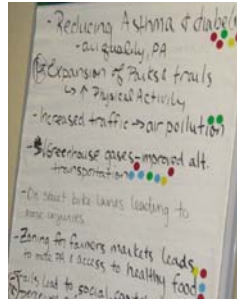 - Reducing Asthma & diabe
- air quality, PA
Expansion of Parks & trails
↳ ↑ Physical Activity
- Increased traffic → air pollution
- Greenhouse gases - improved alt.
transportation
- On street bike lanes leading to
more injuries
- Zoning for farmers markets leads
to more PA & access to healthy food
- Trails lead to social